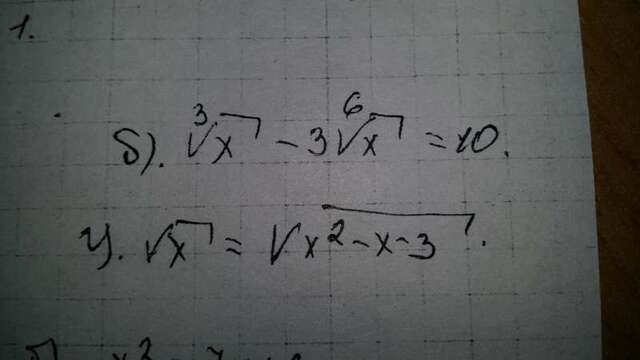 1.
б). ∛x − 3⁶√x = 10.
у. √x = √x² − x − 3.